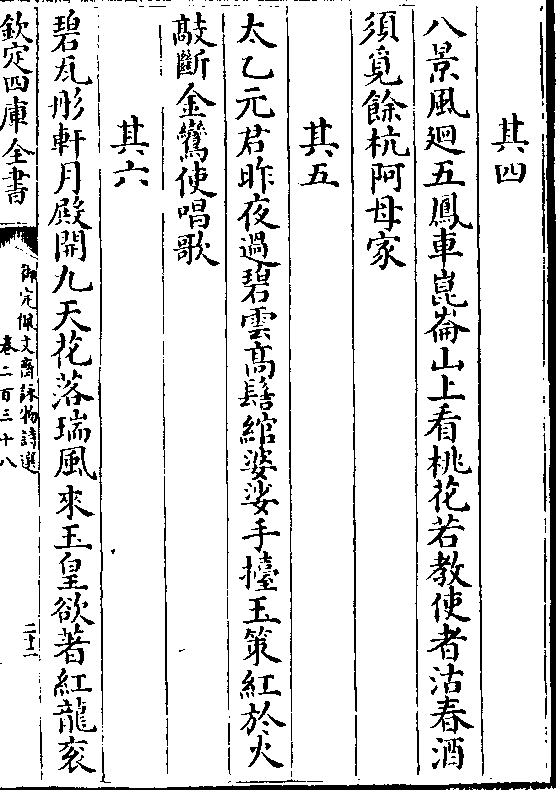 其四
八景風迴五鳳車崑崙山上看桃花若教使者沽春酒
須覓餘杭阿母家
其五
太乙元君昨夜過碧雲高髻綰婆娑手擡玉策紅於火
敲斷金鸞使唱歌
其六
碧瓦彤軒月殿開九天花落瑞風來玉皇欲著紅龍衮
欽定四庫全書
御定佩文齋詠物詩選
卷二百三十八
二十二